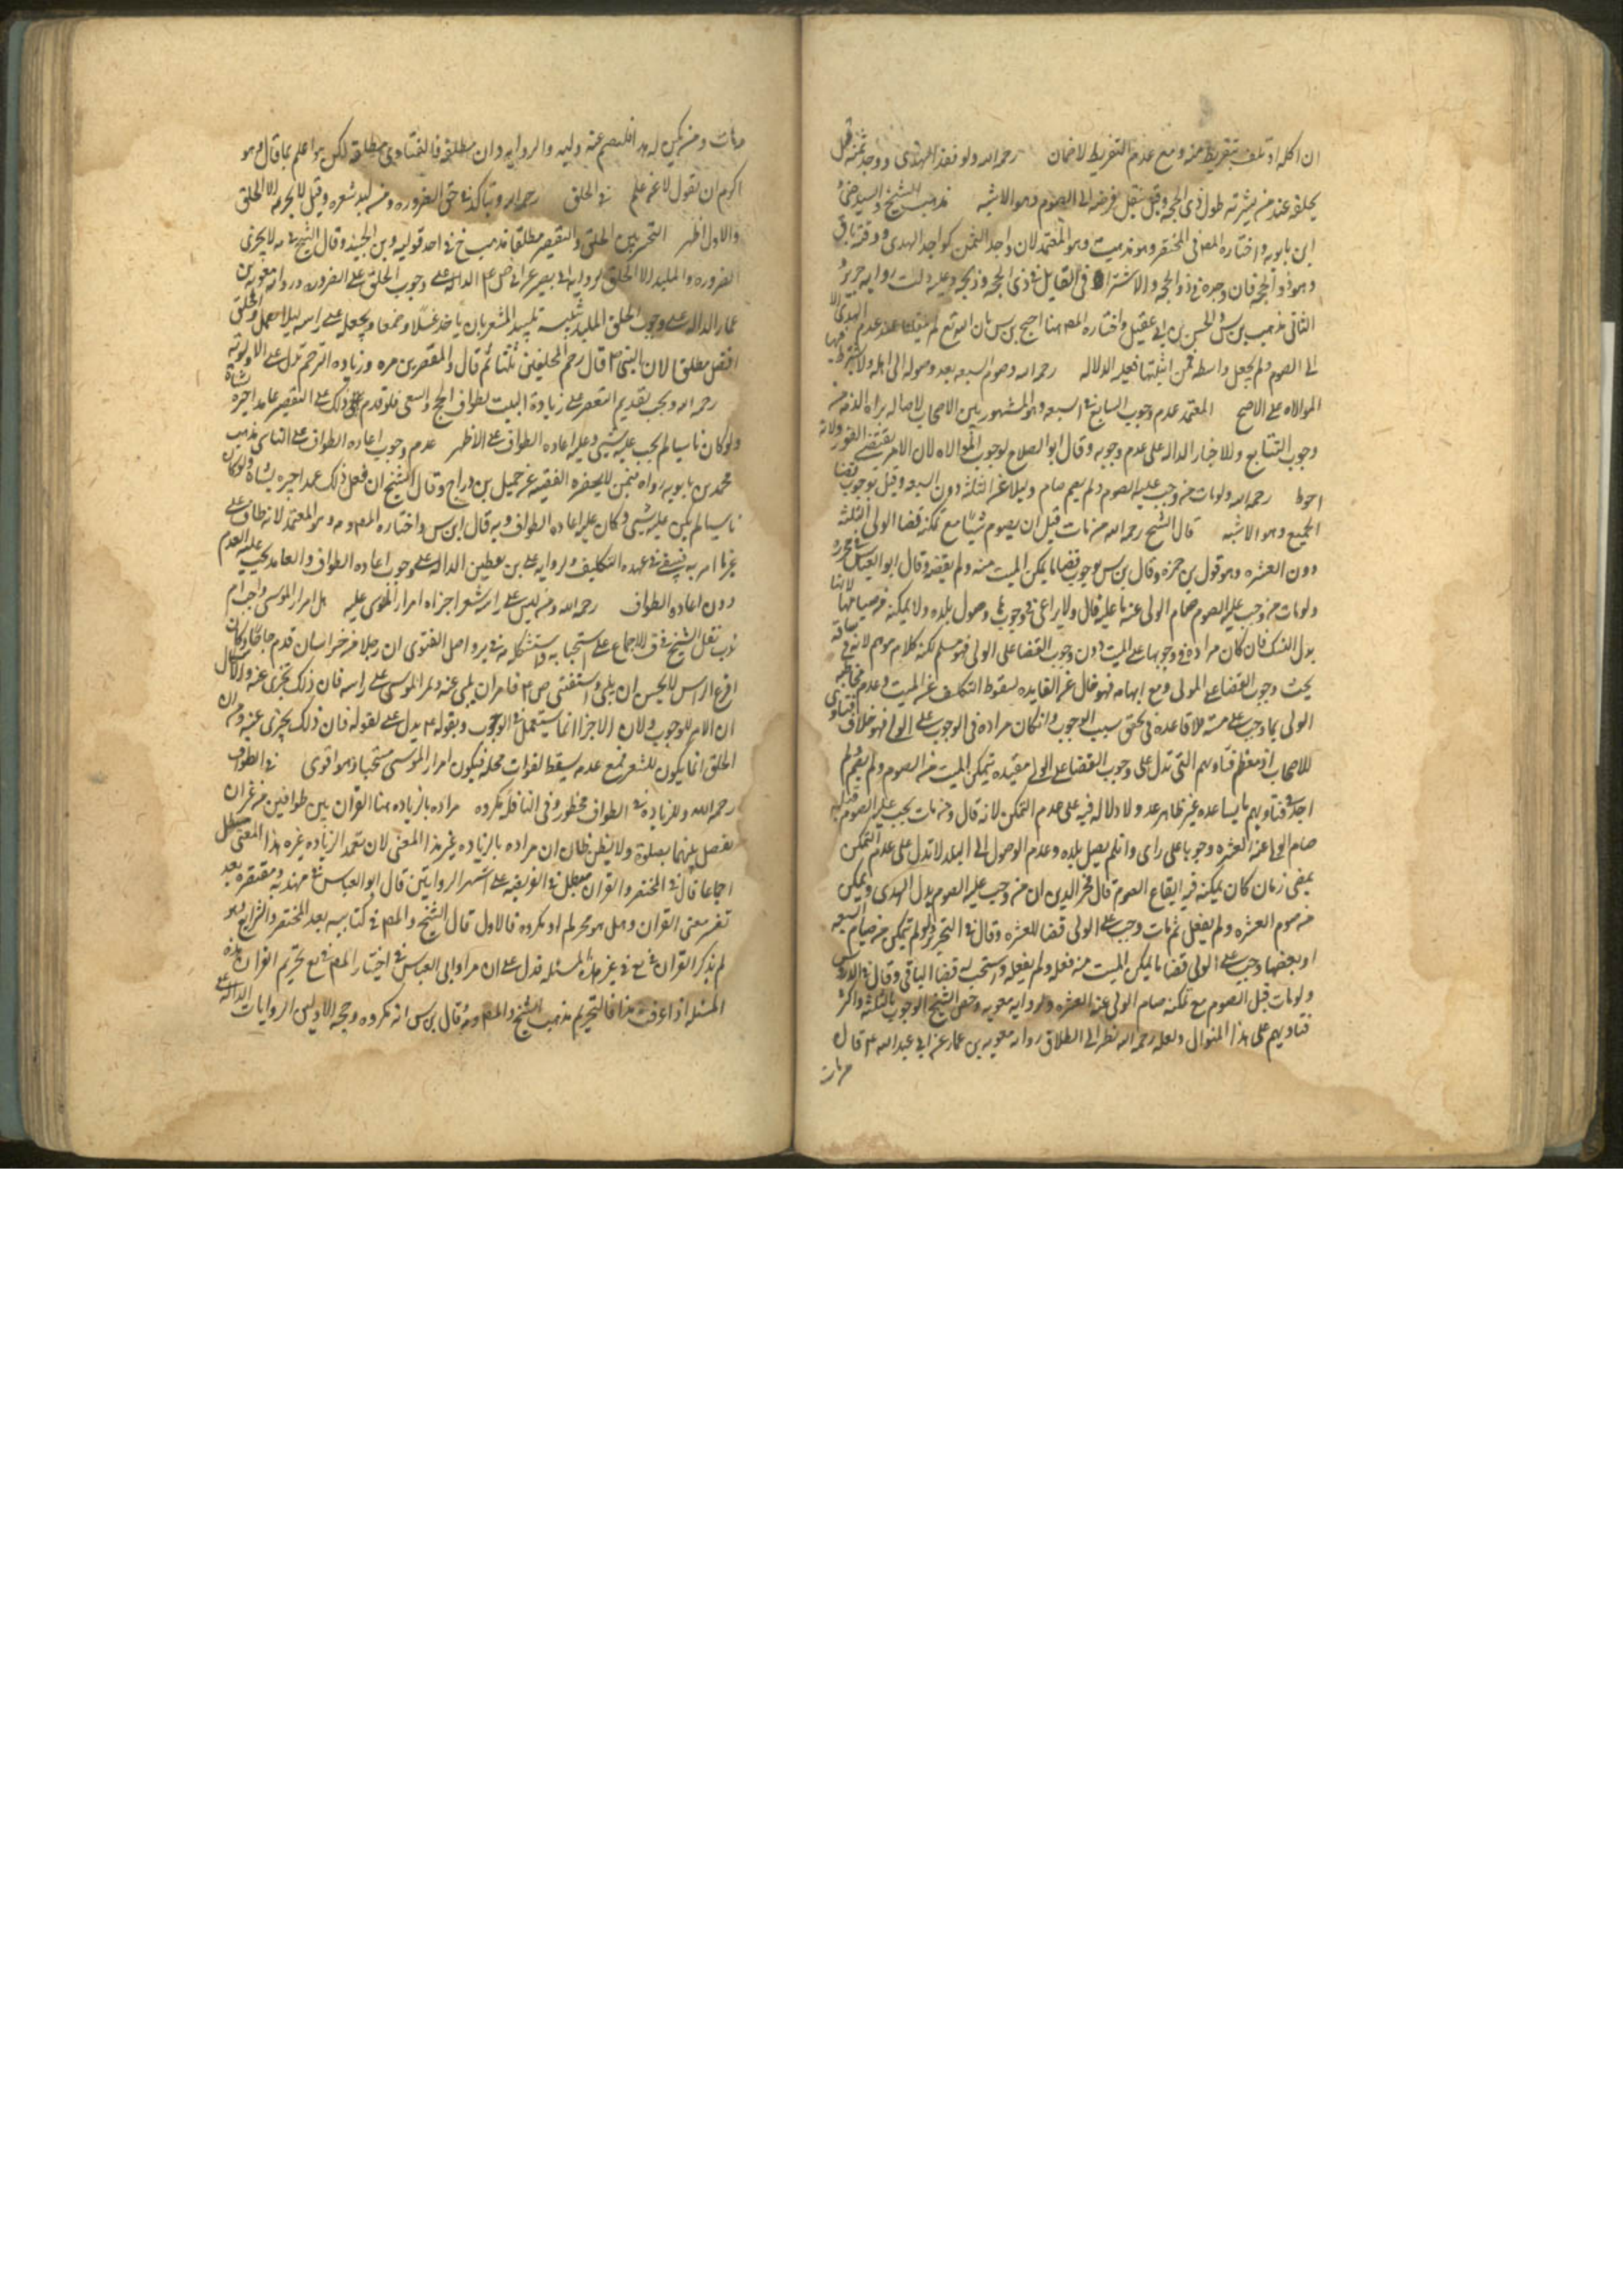 ان اكله او تلف بتفريط منه ومع عدم التفريط لا ضمان رحمه الله ولو فقد الهدى ووجد ثمنه قيل
يخلفه عند من يشتريه طول ذى الحجه وقيل ينتقل فرضه الى الصوم وهو الاشبه مذهب الشيخ والسيد
ابن بابويه واختاره المص فى المختصر وهو مذهب وهو المعتمد لان واجد الثمن كواجد الهدى ووقته باق
وهو ذو الحجه فان وجده فى ذو الحجه والا اشتراه فى القابل فى ذى الحجه وذبحه وعليه دلت روايه حريز
الثانى مذهب بن س والحسن بن ابى عقيل واختاره المص هنا احتج بن س بان الله تع لم ينقلنا عند عدم الهدى الا
الى الصوم ولم يجعل واسطه فمن اثبتها فعليه الدلاله رحمه الله وصوم السبعه بعد وصوله الى اهله ولا يشترط فيها
الموالاه على الاصح المعتمد عدم وجوب التتابع فى السبعه وهو المشهور بين الاصحاب لاصاله براه الذمه من
وجوب التتابع وللاخبار الداله على عدم وجوبه وقال ابو الصلاح بوجوب الموالاه لان الامر يقتضى الفور ولانه
احوط رحمه الله ولو مات من وجب عليه الصوم ولم يصم صام وليه عنه الثلثه دون السبعه وقيل بوجوب قضا
الجميع وهو الاشبه قال الشيخ رحمه الله من مات قبل ان يصوم شيا مع تمكنه قضا الولى الثلثه
دون العشره وهو قول بن حمزه وقال بن س بوجوب قضا ما يمكن الميت منه ولم يقضه وقال ابو العباس فى محرره
ولو مات من وجب عليه الصوم صام الولى عنه ما عليه قال ولا يراعى فى وجوبها وصول بلده ولا يمكنه من صيامها لانها
بدل النسك فان كان مراده فى وجوبها على الميت دون وجوب القضا على الولى فهو مسلم لكنه كلام موهم لانه فى سياقه
بحث وجوب القضا على الولى ومع ابهامه فهو خال عن الفايده لسقوط التكليف عن الميت وعدم مخاطبه
الولى بما وجب على ميته فلا قاعده فى تحقق سبب الوجوب وان كان مراده فى الوجوب على الولى فهو خلاف فتاوى
الاصحاب اذ معظم فتاويهم التى تدل على وجوب القضا على الولى مقيده بتمكن الميت من الصوم ولم يصم ولم
اجد فى فتاويهم ما يساعده غير ظاهر عد ولا دلاله فيه على عدم التمكن لانه قال ومن مات يجب عليه الصوم قبله
صام الولى عنه العشره وجوبا على راى وان لم يصل بلده وعدم الوصول الى البلد لا تدل على عدم التمكن
بمضى زمان كان يمكنه فيه ايقاع الصوم قال فخر الدين ان من وجب عليه الصوم بدل الهدى وتمكن
من صوم العشره ولم يفعل ثم مات وجب على الولى قضا العشره وقال فى التحرير ولو لم يتمكن من صيام السبعه
او بعضها وجب على الولى قضا ما يمكن الميت من فعله ولم يفعله واستحب له قضا الباقى وقال فى الدروس
ولو مات قبل الصوم مع تمكنه صام الولى عنه العشره ولو روايه معويه وخص الشيخ الوجوب بالثلثه واكثر
فتاويهم على هذا المنوال ولعله رحمه الله نظر الى اطلاق روايه معويه بن عمار عن ابى عبد الله ع قال
من مات
من مات ولم يكن له هدى فليصم عنه وليه والروايه وان مطلقه فالفتاوى مطلقه لكن هو اعلم بما قال وهو
اكرم ان يقول لا عن علم فى الحلق رحمه الله ويتاكد فى حق الصروره ومن لبد شعره وقيل لا يجزيه الا الحلق
والاول اظهر التخيير بين الحلق والتقصير مطلقا مذهب خ فى احد قوليه وبن الجنيد وقال الشيخ فى يه لا يجزى
الصروره والملبد الا الحلق لروايه ابى بصير عن ابى ع الداله على وجوب الحلق على الصروره وروايه معويه بن
عمار الداله على وجوب الحلق الملبد تنبيه تلبيد الشعر بان ياخذ عسلا وصمغا ويجعله على راسه ليلا يقمل والحلق
افضل مطلقا لان النبى ع قال رحم الله المحلقين ثلثا ثم قال والمقصرين مره وزياده الترحم تدل على الاولويه
رحمه الله ويجب تقديم التقصير على زيارة البيت لطواف الحج والسعى فلو قدم ذلك على التقصير عامدا جبره بشاة
ولو كان ناسيا لم يجب عليه شيى وعليه اعاده الطواف على الاظهر عدم وجوب اعاده الطواف على الناسى مذهب
محمد بن بابويه رواه فى من لا يحضره الفقيه عن جميل بن دراج وقال الشيخ ان فعل ذلك عمدا جبره بشاة ولو كان
ناسيا لم يكن عليه شيى وكان عليه اعاده الطواف وبه قال ابن س واختاره المص وهو المعتمد لانه طاف على
غير ما امر به فيبقى فى عهده التكليف ولروايه على بن يقطين الداله على وجوب اعاده الطواف والعامد يجب عليه الدم
دون اعاده الطواف رحمه الله ومن ليس على راسه شعر اجزاه امرار الموسى عليه هل امرار الموسى واجب ام
ندب نقل الشيخ فى ف الاجماع على استحبابه واصل الفتوى ان رجلا من خراسان قدم حاجا وكان
اقرع الراس لا يحسن ان يلبى فاستفتى ص ع فامر ان يلبى عنه ويمر الموسى على راسه فان ذلك يجزى عنه
ان الامر للوجوب ولان الاجزا انما يستعمل فى الوجوب وبقوله ع يدل على لقوله فان ذلك يجزى عنه ومن ان
الحلق انما يكون للشعر فمع عدمه يسقط لفوات محله فيكون امرار الموسى مستحبا وهو اقوى فى الطواف
رحمه الله والزياده فى الطواف محظور وفى النافله مكروه مراده بالزياده هنا القران بين طوافين من غير ان
يفصل بينهما بصلوة ولا يظن ظان ان مراده بالزياده غير هذا المعنى لان تعمد الزياده غير هذا المعنى مبطل
اجماعا قال فى المختصر والقران مبطل فى الفريضه على اشهر الروايتين قال ابو العباس فى مهذبه ومقتصره بعد
تفسير معنى القران وهل هو محرم او مكروه فالاول قال الشيخ والمص فى كتابيه يعنى المختصر والشرايع وهو
لم يذكر القران فى يع فى غير هذه المسئله فدل على ان مراد ابى العباس فى اختيار المص فى يع تحريم القران هذه
المسئله اذا عرفت هذا فالتحريم مذهب الشيخ والمص وقال بن س انه مكروه وحجه الاولين الروايات الداله على